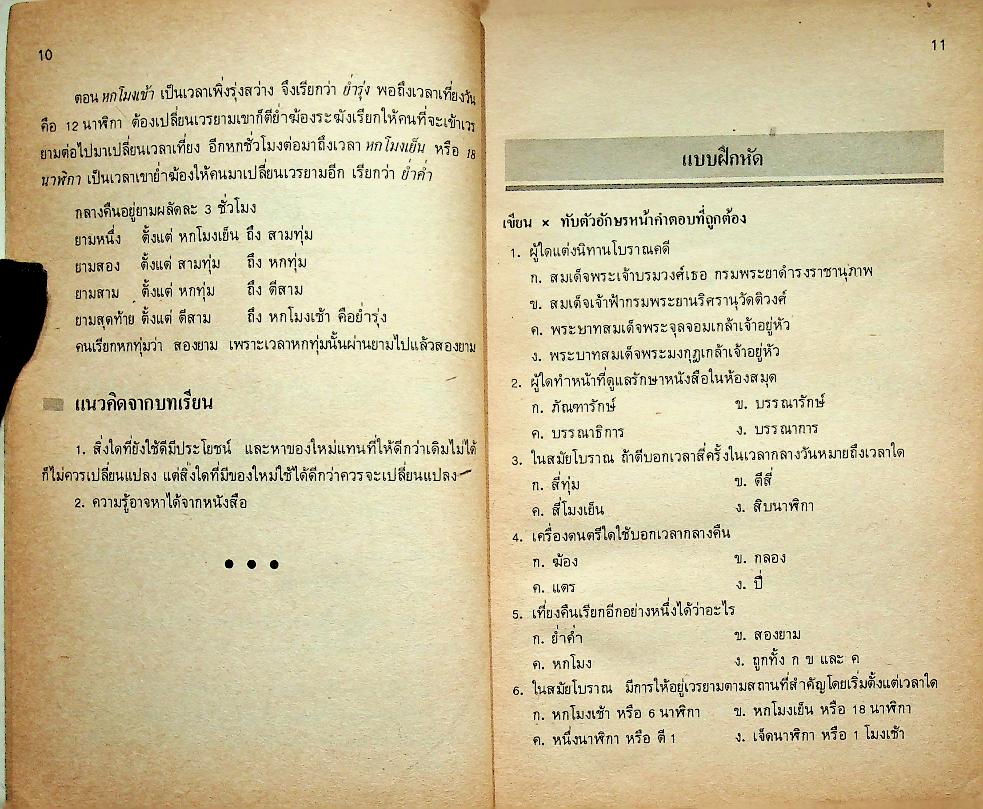 10
ตอน หกโมงเช้า เป็นเวลาเพิ่งรุ่งสว่าง จึงเรียกว่า ย่ำรุ่ง พอถึงเวลาเที่ยงวัน
คือ 12 นาฬิกา ต้องเปลี่ยนเวรยามเขาก็ตีย่ำฆ้องระฆังเรียกให้คนที่จะเข้าเวร
ยามต่อไปมาเปลี่ยนเวลาเที่ยง อีกหกชั่วโมงต่อมาถึงเวลา หกโมงเย็น หรือ 18
นาฬิกา เป็นเวลาเขาย่ำฆ้องให้คนมาเปลี่ยนเวรยามอีก เรียกว่า ย่ำค่ำ
กลางคืนอยู่ยามผลัดละ 3 ชั่วโมง
ยามหนึ่ง ตั้งแต่ หกโมงเย็น ถึง สามทุ่ม
ยามสอง ตั้งแต่ สามทุ่ม ถึง หกทุ่ม
ยามสาม ตั้งแต่ หกทุ่ม ถึง ตีสาม
ยามสุดท้าย ตั้งแต่ ตีสาม ถึง หกโมงเช้า คือย่ำรุ่ง
คนเรียกหกทุ่มว่า สองยาม เพราะเวลาหกทุ่มนั้นผ่านยามไปแล้วสองยาม
แนวคิดจากบทเรียน
1. สิ่งใดที่ยังใช้ดีมีประโยชน์ และหาของใหม่แทนที่ให้ดีกว่าเดิมไม่ได้
ก็ไม่ควรเปลี่ยนแปลง แต่สิ่งใดที่มีของใหม่ใช้ได้ดีกว่าควรจะเปลี่ยนแปลง
2. ความรู้อาจหาได้จากหนังสือ
● ● ●
11
แบบฝึกหัด
เขียน × ทับตัวอักษรหน้าคำตอบที่ถูกต้อง
1. ผู้ใดแต่งนิทานโบราณคดี
ก. สมเด็จพระเจ้าบรมวงศ์เธอ กรมพระยาดำรงราชานุภาพ
ข. สมเด็จเจ้าฟ้ากรมพระยานริศรานุวัดติวงศ์
ค. พระบาทสมเด็จพระจุลจอมเกล้าเจ้าอยู่หัว
ง. พระบาทสมเด็จพระมงกุฎเกล้าเจ้าอยู่หัว
2. ผู้ใดทำหน้าที่ดูแลรักษาหนังสือในห้องสมุด
ก. ภัณฑารักษ์ ข. บรรณารักษ์
ค. บรรณาธิการ ง. บรรณาการ
3. ในสมัยโบราณ ถ้าตีบอกเวลาสี่ครั้งในเวลากลางวันหมายถึงเวลาใด
ก. สี่ทุ่ม ข. ตีสี่
ค. สี่โมงเย็น ง. สิบนาฬิกา
4. เครื่องดนตรีใดใช้บอกเวลากลางคืน
ก. ฆ้อง ข. กลอง
ค. แตร ง. ปี่
5. เที่ยงคืนเรียกอีกอย่างหนึ่งได้ว่าอะไร
ก. ย่ำค่ำ ข. สองยาม
ค. หกโมง ง. ถูกทั้ง ก ข และ ค
6. ในสมัยโบราณ มีการให้อยู่เวรยามตามสถานที่สำคัญโดยเริ่มตั้งแต่เวลาใด
ก. หกโมงเช้า หรือ 6 นาฬิกา ข. หกโมงเย็น หรือ 18 นาฬิกา
ค. หนึ่งนาฬิกา หรือ ตี 1 ง. เจ็ดนาฬิกา หรือ 1 โมงเช้า